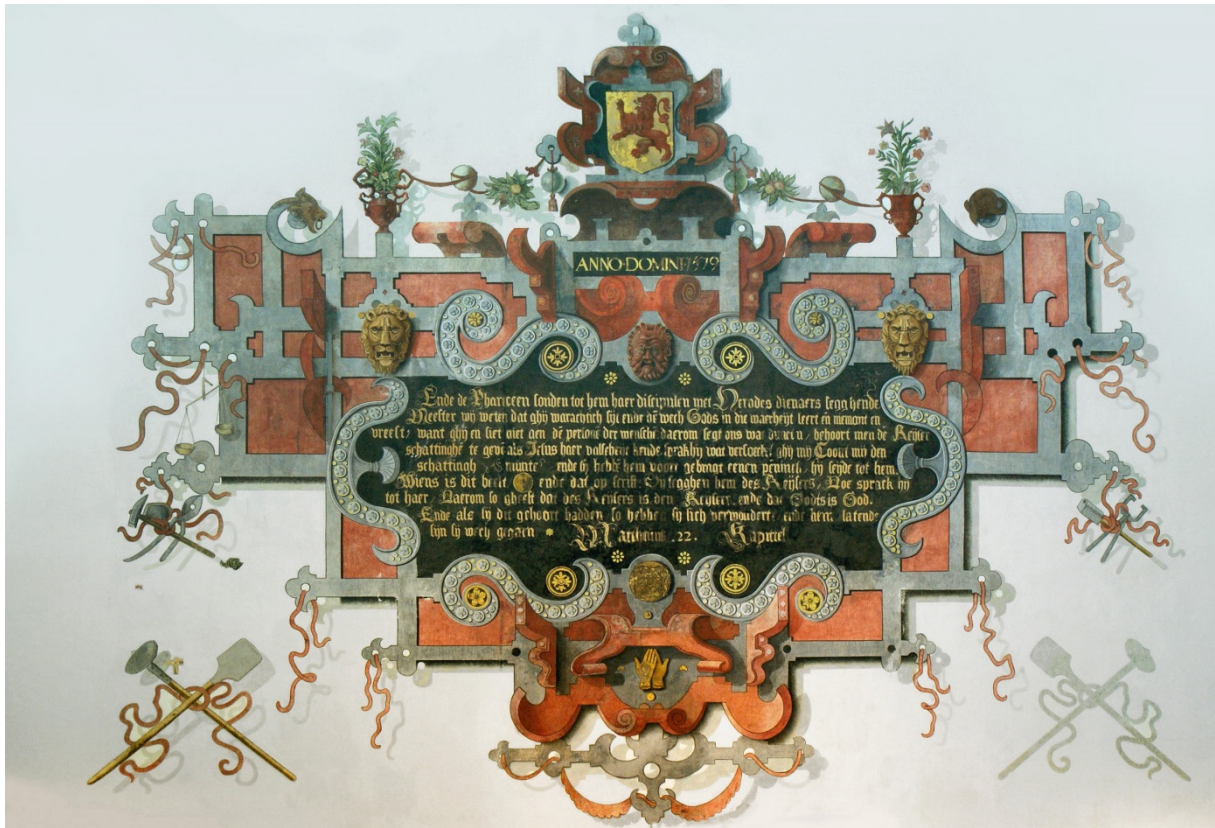 ANNO·DOMINI 1579
Ende de Phariceen sonden tot hem haer discipulen met Herodes dienaers segghende
Meester wij weten dat ghij warachtich sijt ende dē wech Gods in die waerheyt leert en niemont en
vreest, want ghij en siet niet aen de persone der mensche daerom segt ons wat , behoort men de Keyser
schattinghe te geve als Jesus haer kende sprak hij wat versoect ghij mij Toont mij den
schattingh munte, ende sij hebbē hem voor gebragt eenen pennick, hij seyde tot hem
Wiens is dit beelt ende dat op scrift Sij segghen hem des Keijsers, Doe sprack hij
tot haer, Daerom so gheeft dat des Keysers is den Keyser, ende dat Godts is God.
Ende als sij dit gehoort hadden so hebben sij sich verwondert, ende hem latende
sijn sij wech gegaen Mattheum .22. Kapittel